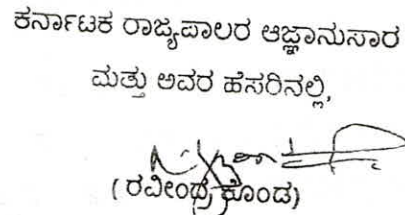 ಕರ್ನಾಟಕ ರಾಜ್ಯಪಾಲರ ಆಜ್ಞಾನುಸಾರ
ಮತ್ತು ಅವರ ಹೆಸರಿನಲ್ಲಿ,
(ರವೀಂದ್ರ ಕೊಂಡ)